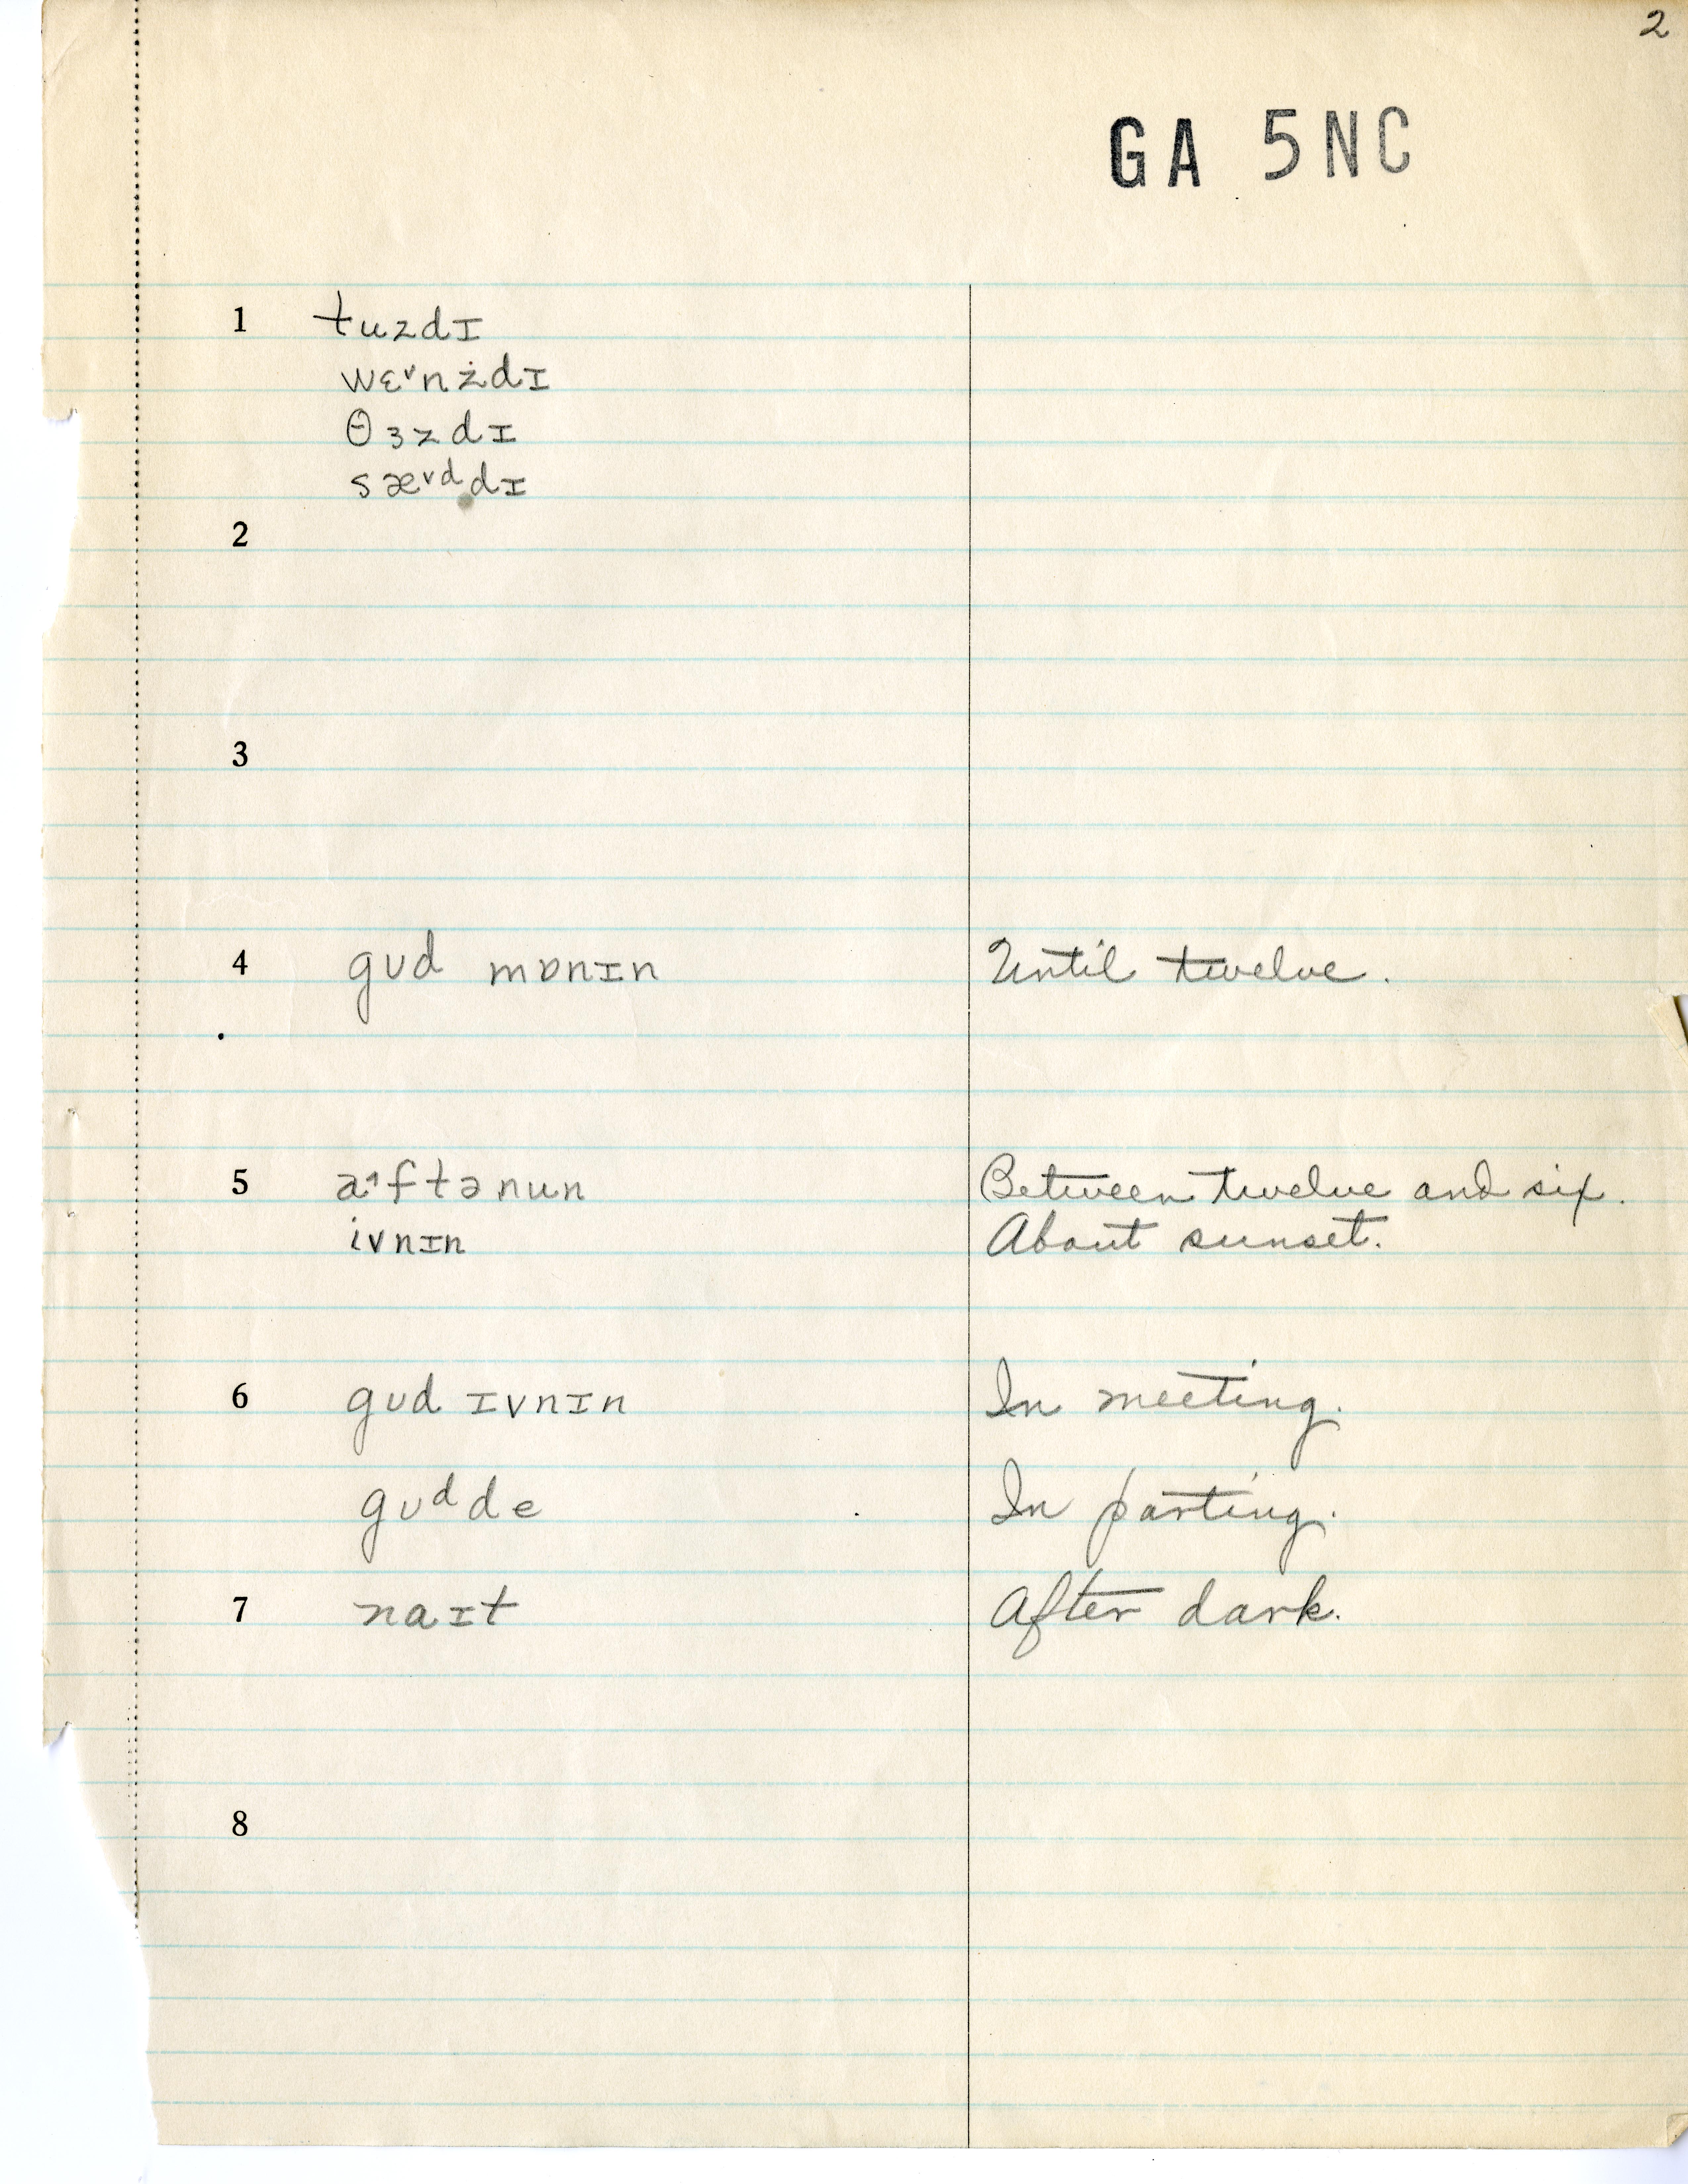 2
GA 5NC
1 tuzdɪ
wɛ˅nżdɪ
θɜzdɪ
sæ˅ᵈdɪ
2
3
4 gʊd mɒnɪn Until twelve.
5 a˔ftənun Between twelve and six.
ivnɪn About sunset.
6 gʊd ɪvnɪn In meeting.
gʊᵈde In parting.
7 naɪt After dark.
8